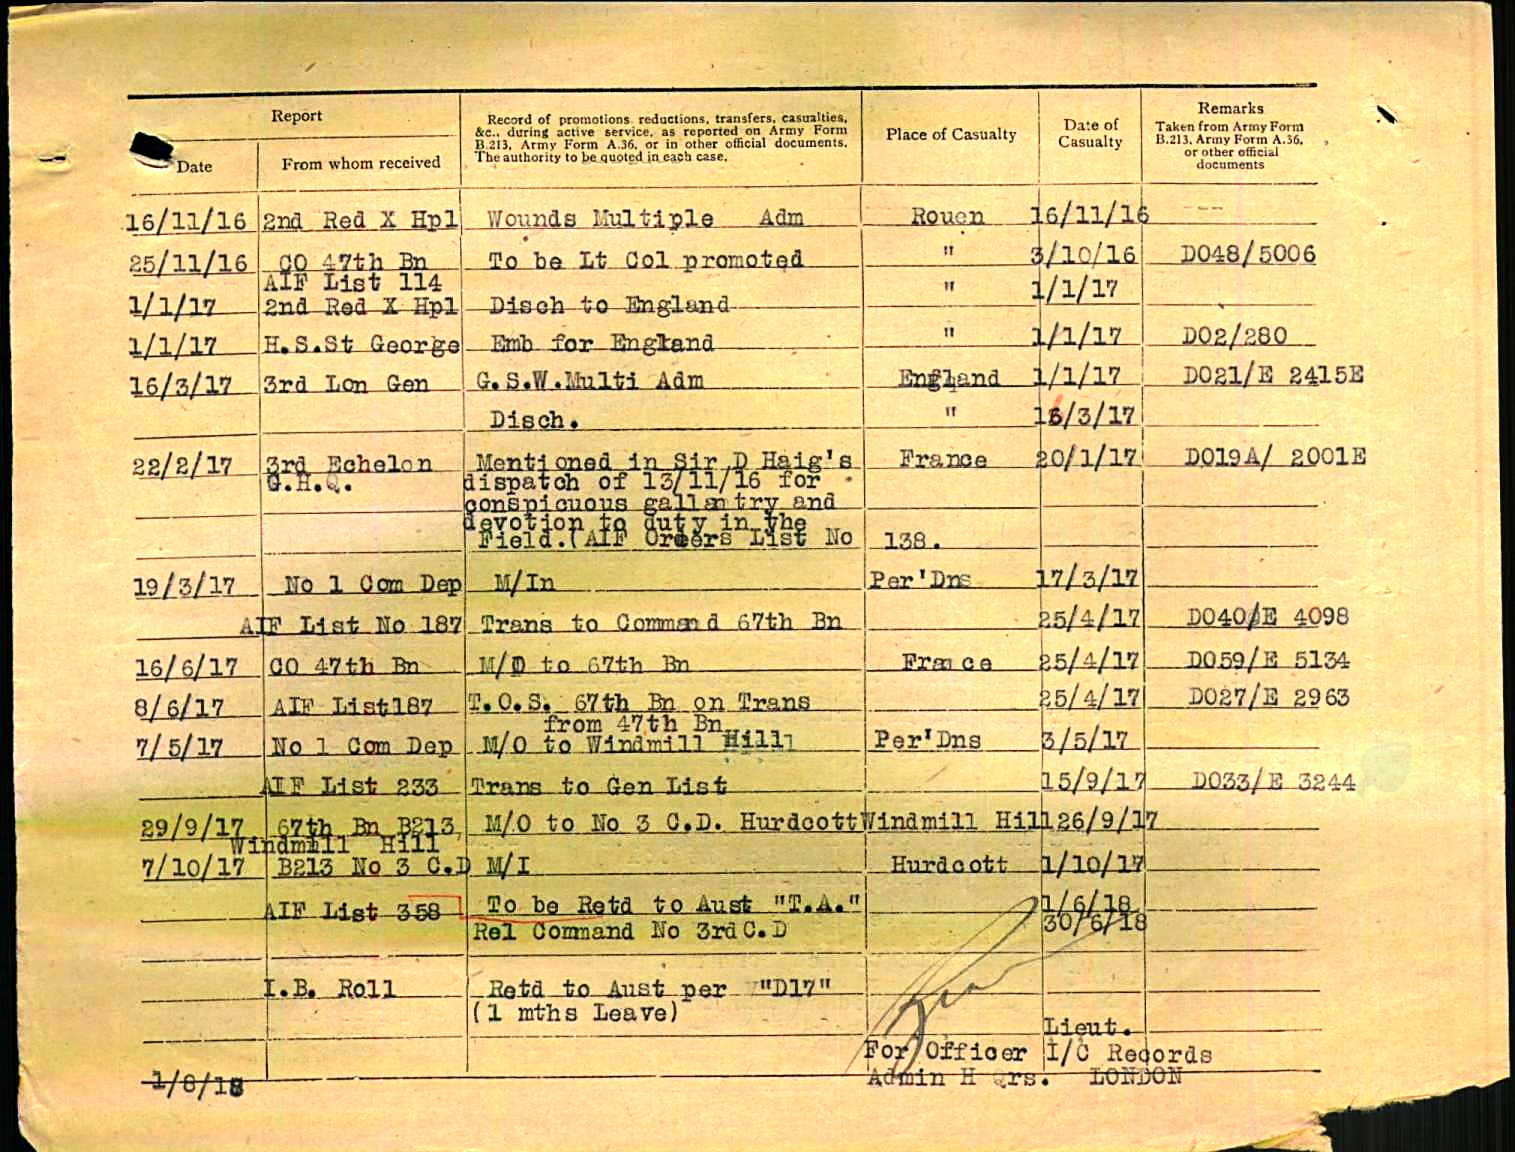 Report
Record of promotions, reductions, transfers, casualties,
&c., during active service, as reported on Army Form
B.213, Army Form A.36, or in other official documents.
The authority to be quoted in each case.
Place of Casualty
Date of
Casualty
Remarks
Taken from Army Form
B.213, Army Form A.36,
or other official
documents
Date
From whom received
16/11/16 2nd Red X Hpl Wounds Multiple Adm Rouen 16/11/16 ---
25/11/16 CO 47th Bn To be Lt Col promoted " 3/10/16 DO48/5006
AIF List 114
1/1/17 2nd Red X Hpl Disch to England " 1/1/17
1/1/17 H.S.St George Emb for England " 1/1/17 DO2/280
16/3/17 3rd Lon Gen G.S.W.Multi Adm England 1/1/17 DO21/E 2415E
Disch. " 16/3/17
22/2/17 3rd Echelon Mentioned in Sir D Haig's France 20/1/17 DO19A/ 2001E
G.H.Q. dispatch of 13/11/16 for
conspicuous gallantry and
devotion to duty in the
Field.(AIF Orders List No 138.
19/3/17 No 1 Com Dep M/In Per'Dns 17/3/17
AIF List No 187 Trans to Command 67th Bn 25/4/17 DO40/E 4098
16/6/17 CO 47th Bn M/O to 67th Bn France 25/4/17 DO59/E 5134
8/6/17 AIF List187 T.O.S. 67th Bn on Trans 25/4/17 DO27/E 2963
from 47th Bn
7/5/17 No 1 Com Dep M/O to Windmill Hill Per'Dns 3/5/17
AIF List 233 Trans to Gen List 15/9/17 DO33/E 3244
29/9/17 67th Bn B213, M/O to No 3 C.D. Hurdcott Windmill Hill 26/9/17
Windmill Hill
7/10/17 B213 No 3 C.D M/I Hurdcott 1/10/17
AIF List 358 To be Retd to Aust "T.A." 1/6/18
Rel Command No 3rd C.D 30/6/18
I.B. Roll Retd to Aust per "D17"
(1 mths Leave)
Lieut.
For Officer I/C Records
1/8/18 Admin H Qrs. LONDON